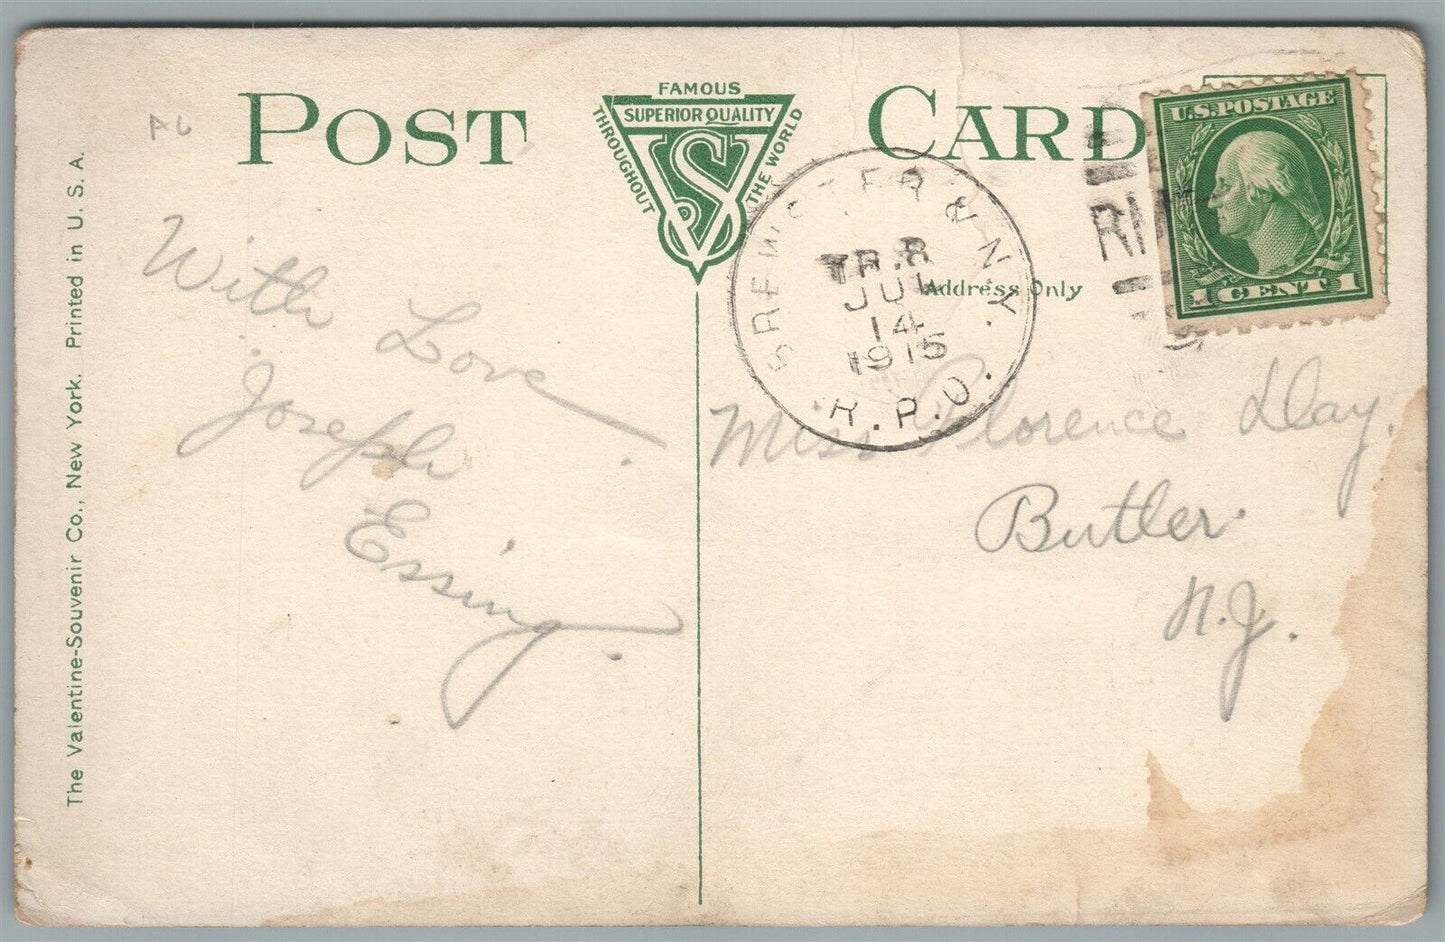 POST CARD
FAMOUS
SUPERIOR QUALITY
THROUGHOUT THE WORLD
VS
U.S. POSTAGE
1 CENT 1
P6
BREWSTER & N.Y.
TR.R
JUL
14
1915
R.P.O.
Address Only
With Love
Joseph
Essing.
Miss Florence Day.
Butler.
N.J.
The Valentine-Souvenir Co., New York. Printed in U. S. A.